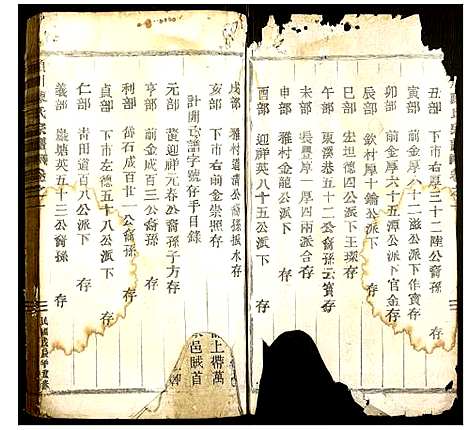 丑部 下市右厚三十二陸公裔孫 存
寅部 前金厚八十二滋公派下作賓存
卯部 前金厚六十五潭公派下官金存
辰部 欽村厚十鏞公派下 存
巳部 宏坦德四公派下王琛存
午部 東溪巷五十二公裔孫云賓存
未部 吳 厚一厚四兩派合存
申部 前村金龍公派下 存
酉部 迎祥英八十五公派下 存
戌部 雅村道滿公裔孫振水存
亥部 下市右前金崇熙存
計開平譜字號存于目錄
元部 黃迎祥元春公裔孫子方存
亨部 前金成百三公裔孫 存
利部 岱石成百廿一公裔孫 存
貞部 下市左德五十八公派下 存
仁部 青田道百八公派下 存
義部 嚴塘英五十三公裔孫 存
陳氏宗譜 卷之
上帶萬
邑賊首